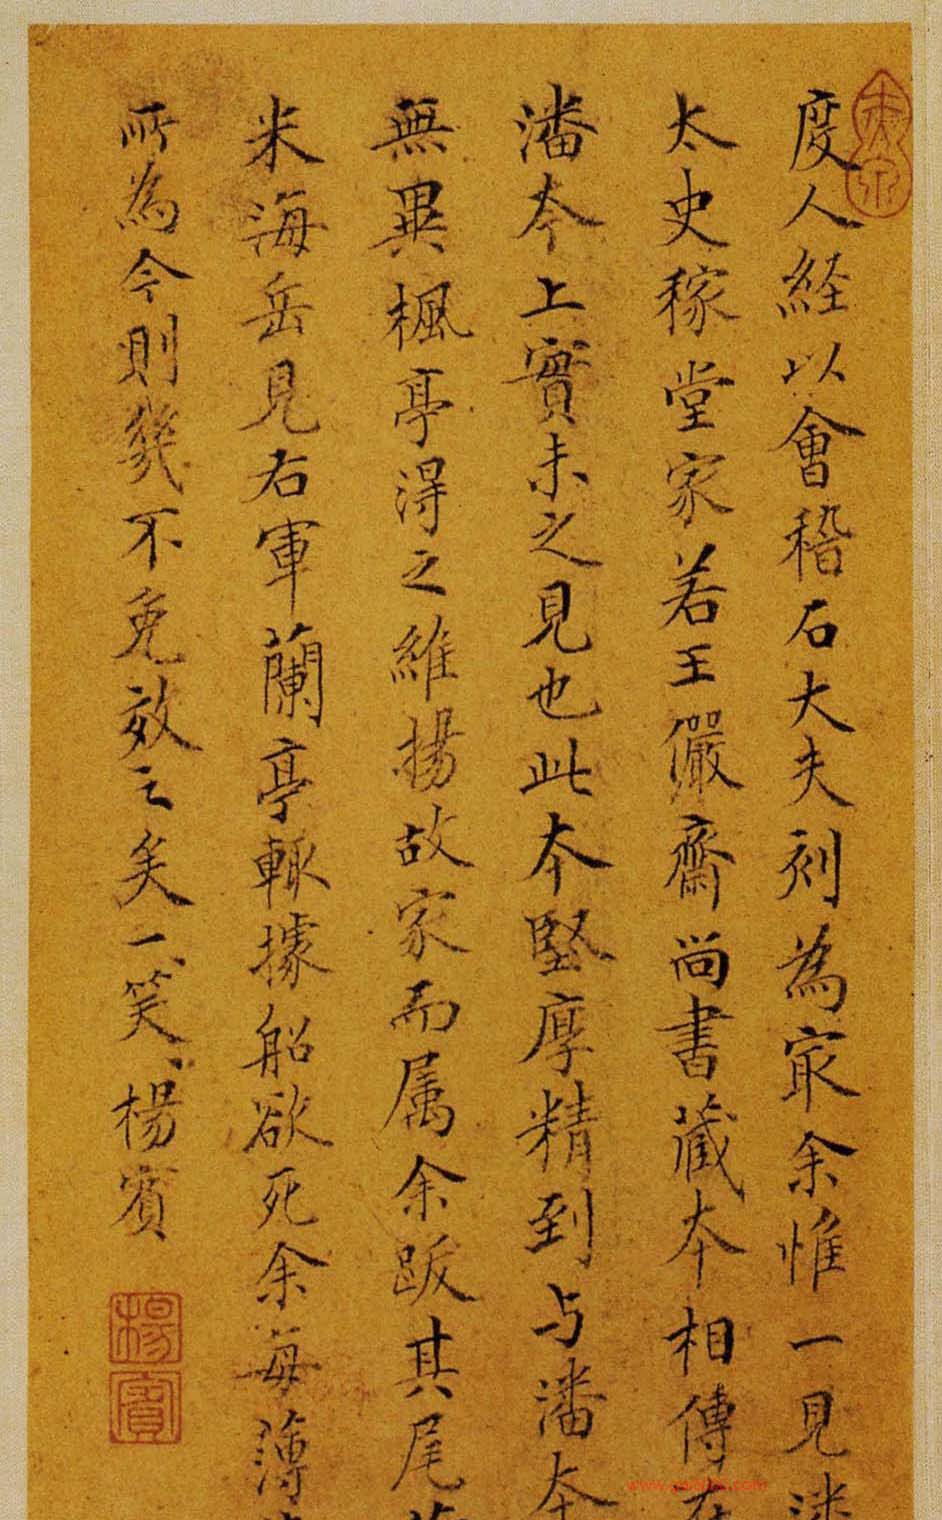 度人経以會稽石大夫刻為冣余惟一見潘
太史稼堂家若王儼齋尚書藏本相傳在
潘本上實未之見也此本堅厚精到与潘本
無異楓亭得之維揚故家而属余跋其尾
米海岳見右軍蘭亭輙據船欲死余每薄
所為今則幾不免效之矣一笑楊賓
楊賓